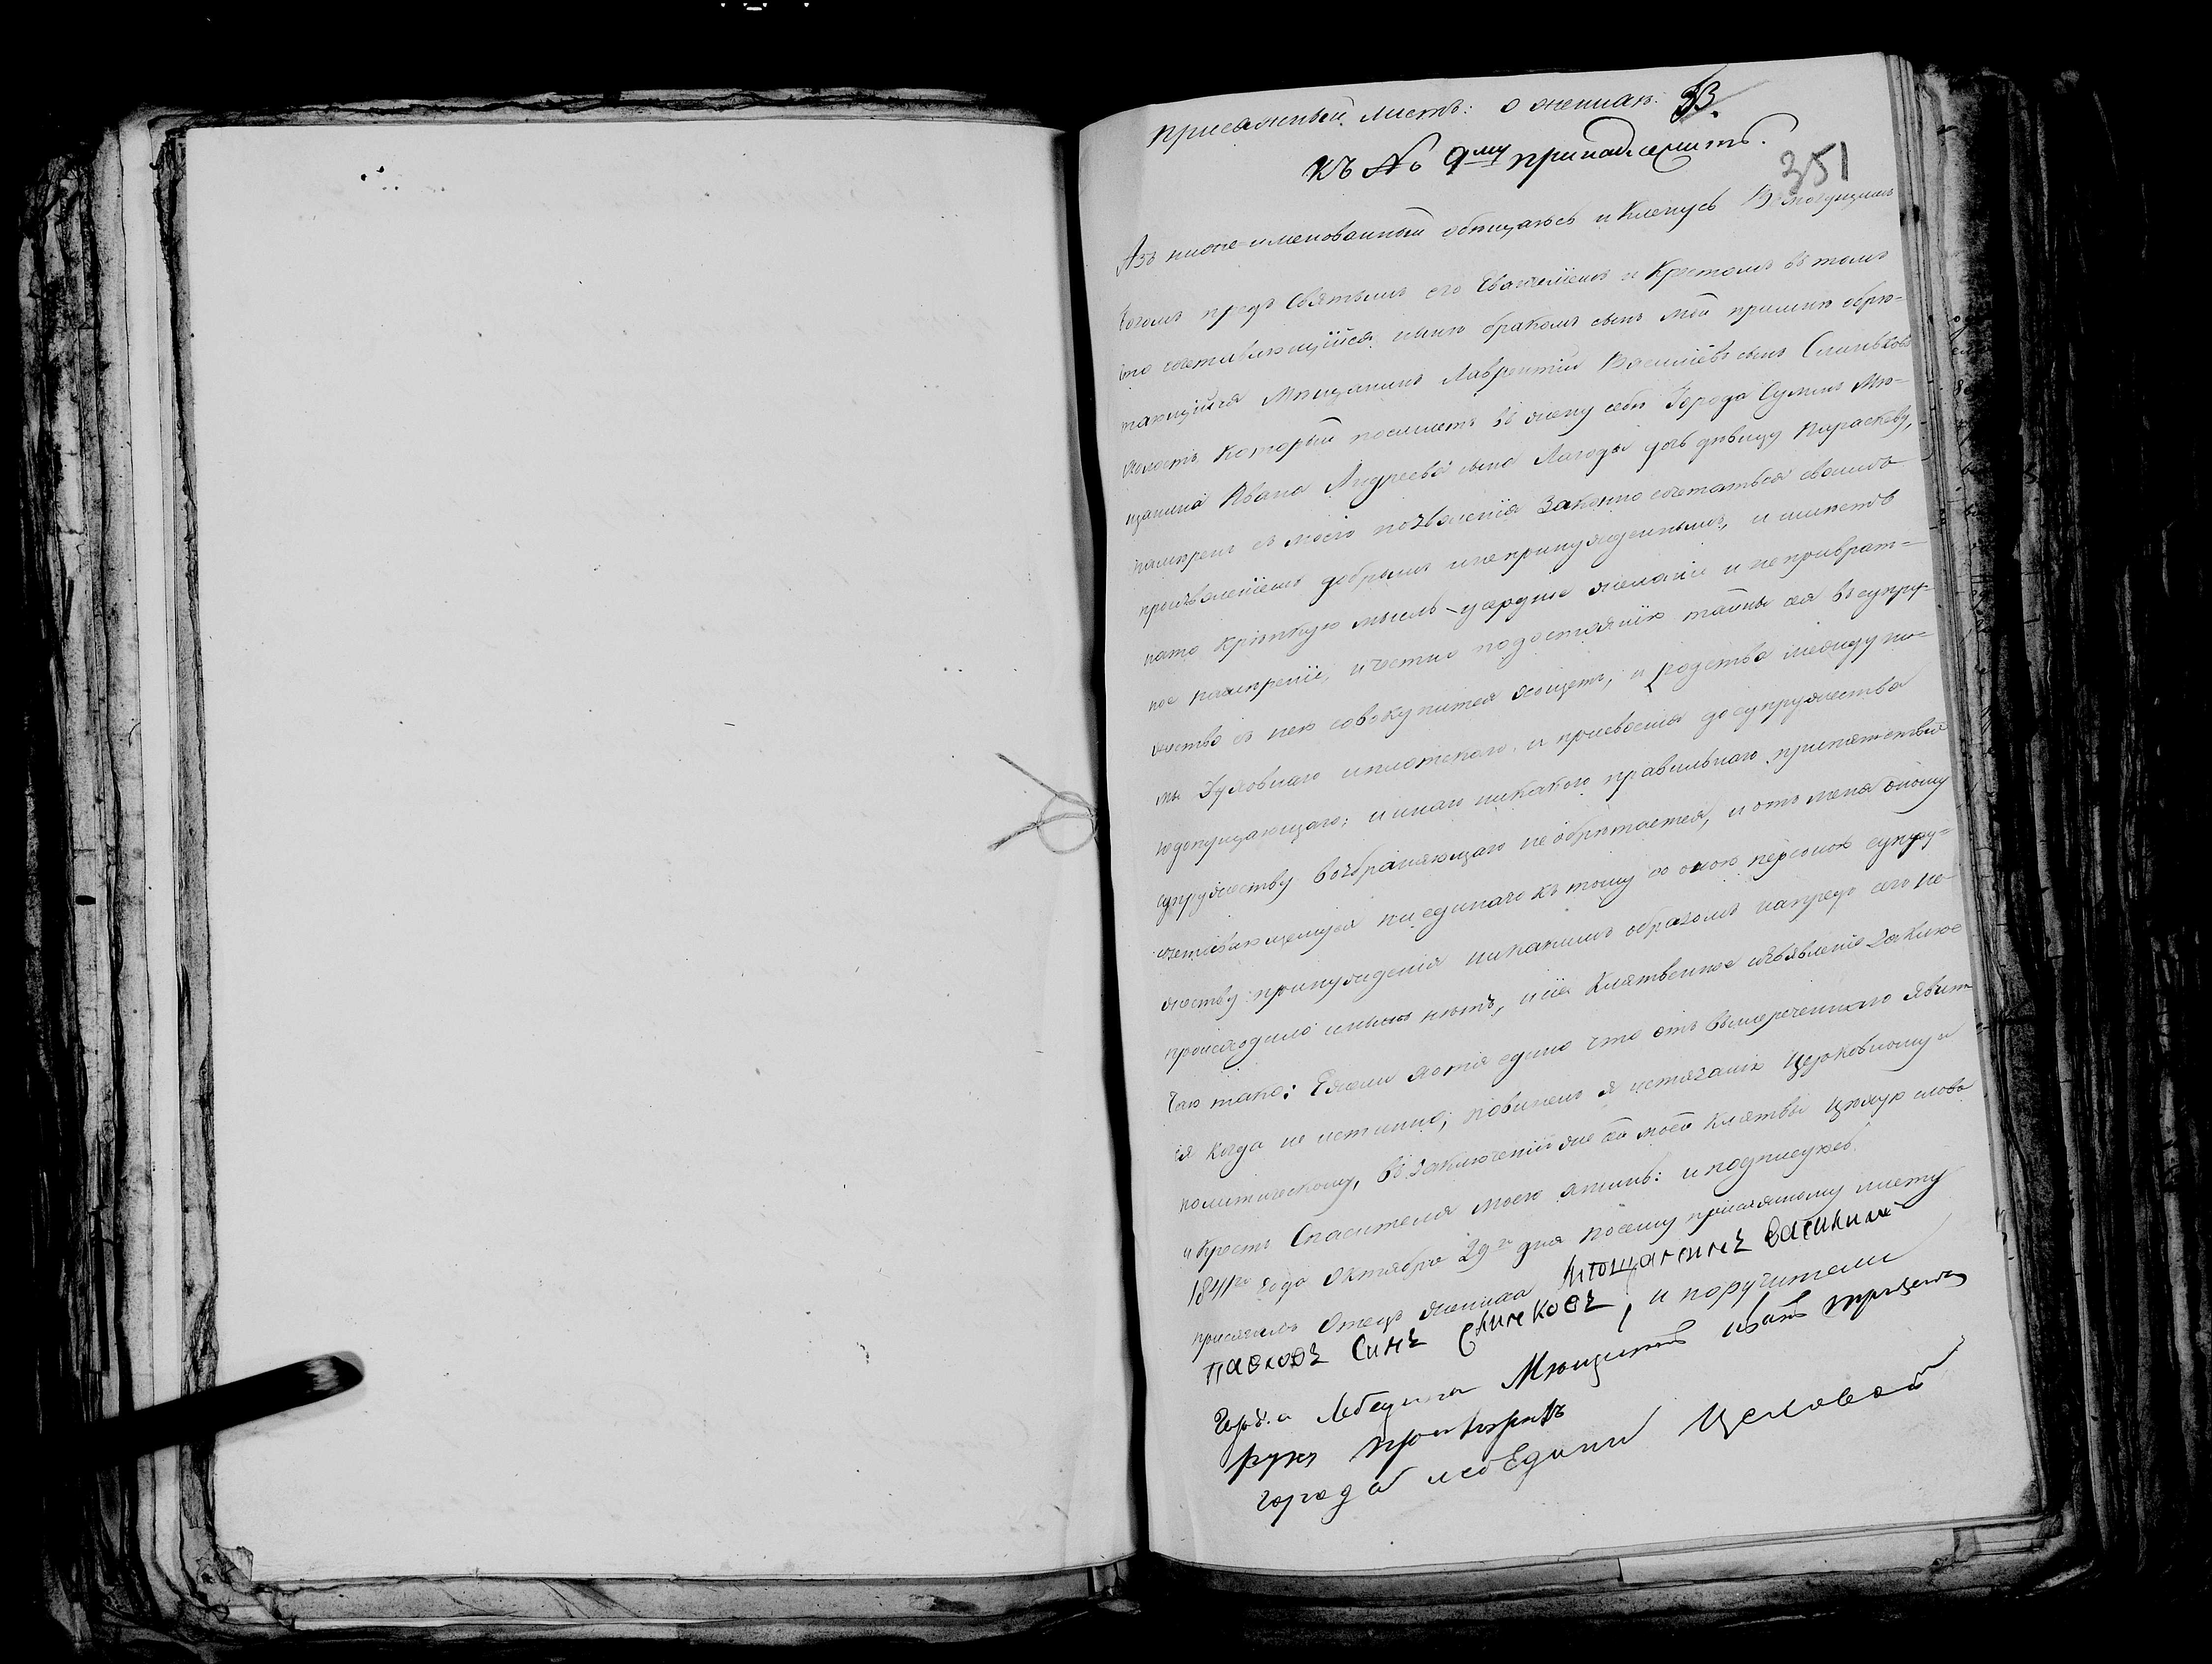 Присяжный листъ: о женихѣ. 33.
Къ № 9му принадлежитъ.
351
Азъ ниже именованный обѣщаюсь и Кленусь Всемогущимъ
Богомъ предъ Святымъ его Евангелiемъ и Крестомъ въ томъ
что сочетавающiйся нынѣ бракомъ сынъ мой принынѣ обрѣ-
тающiйся Мѣщанинъ Лаврентiй Васильевъ сынъ Слинковъ
холостъ который поемлетъ въ жену себѣ Города Сумъ Мѣ-
щанина Ивана Андреева сына Лагоды дочь дѣвицу Параскеву,
намѣренъ съ моего позволенiя Законно сочетаться своимъ
произволенiемъ добрымъ и непринужденнымъ, и имѣетъ
на то крѣпкую мысль усердно желанiе и не преврат-
ное намѣренiе, и честно по достоянiю тайны сея въ супру-
жество съ нею совокупится хощетъ; и родства между ни-
ми духовнаго и плотскаго и присвоенiя до супружества
недопущающаго; и инаго никакого правильнаго препятствiя
супружеству возбраняющаго не обрѣтается, и отъ меня оному
сочетавающемуся ни единаго къ тому со оною персоною супру-
жеству принужденiя никакимъ образомъ напредъ сего не
происходило и нынѣ нѣтъ, и сiе Клятвенное изъявленiе заклю-
чаю тако: Ежели хотя едино что отъ вышереченнаго явит
ся когда не истинно; повиненъ я истязанiю Церковному и
политическому, въ заключенiи же сей моей клятвы цѣлую слова
и крестъ Спасителя моего аминь: и подписуюсь.
1841го года Октября 29го дня по сему присяжному листу
присягалъ Отецъ жениха Мѣщанинъ Василий
Павловъ Синъ Слинковъ, и поручители
Города Лебедина Мѣщанинъ иванъ
руку приложилъ
города лебедина Целовал